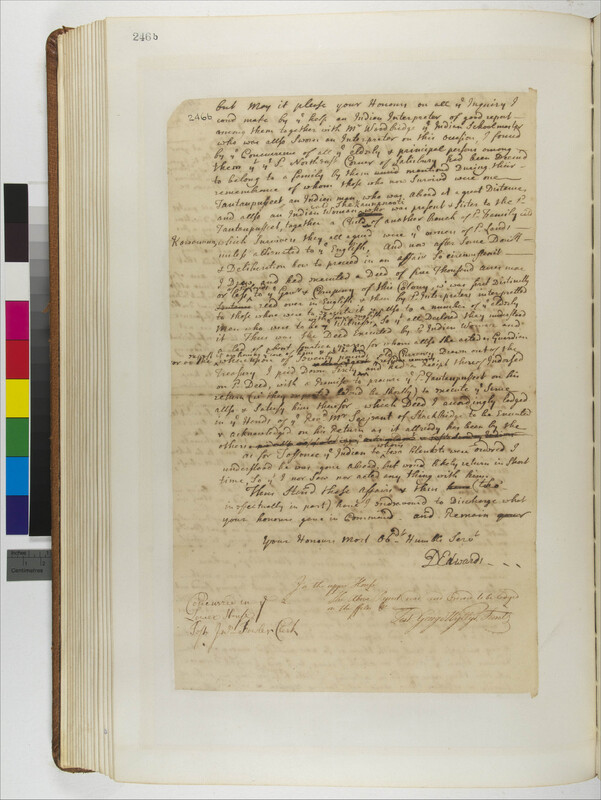 246b
246b
but May it please your Honours on all ye Inquiry I
coud make by ye help an Indian Interpreter of good report
among them together with Mr Woodbridge ye Indian Schoolmaster
who was allso Sworn an Interpreter on this occasion, I found
by ye Concurrence of all ye elderly & principal persons among
them yt ye Sd Northeast Corner of Salisbury had been Deemd
to belong to a family by them mentiond During their
remembrance of whom those who now Survived were one
Tautaupusset an Indian man who was abroad at a great Distance,
and allso an Indian Woman who was present & Sister to the Sd
Tautaupusset, together a Child of another Branch of Sd Family
which Survivors they all agreed were ye owners of Sd Lands
unless alienated to ye English, And now after Some
& Deliberation how to proceed in an affair So
I Drew and had maintd a Deed of five Thousand acres more
or less to ye Govr & Company of this Colony, was first Distinctly
read over in English & then by Sd Interpreters interpretted
to those who were to execute it allso to a number of ye elderly
Men who were to be Witnesses, So yt all Declard they understood
it There was the Deed Executed by Sd Indian Woman and
Lad of about for whom allso she acted as Guardian
upon of Seventy pound Drawn out of the
Treasury I paid Down and had a receipt there Indorsed
on Sd Deed, with a Promise to procure ye Sd Tautaupusset on his
return (wch they expected woud be Shortly) to execute ye Same
allso & Satisfy him therefor which Deed I accordingly lodged
in ye Hands of ye Revd Mr Sergeant of Stockbridge to be Executed
& acknowledged on his Return as it allredy has been by the
others
as for Toffonee ye Indian to whom Blankets were ordered I
understood he was gone abroad, but woud likely return in Short
time, So yt I nor Saw nor acted any thing with him.
Thus Stand those Affairs & thus (tho'
in part) have I endeavoured to Discharge what
your honours gave in Command and Remain
Your Honours most Obdt Humble Servt
D Edwards
In the upper House
Concurrd in ye
Lower House
Test Jn Fowler Clerk
Test George Wyllys Secrety